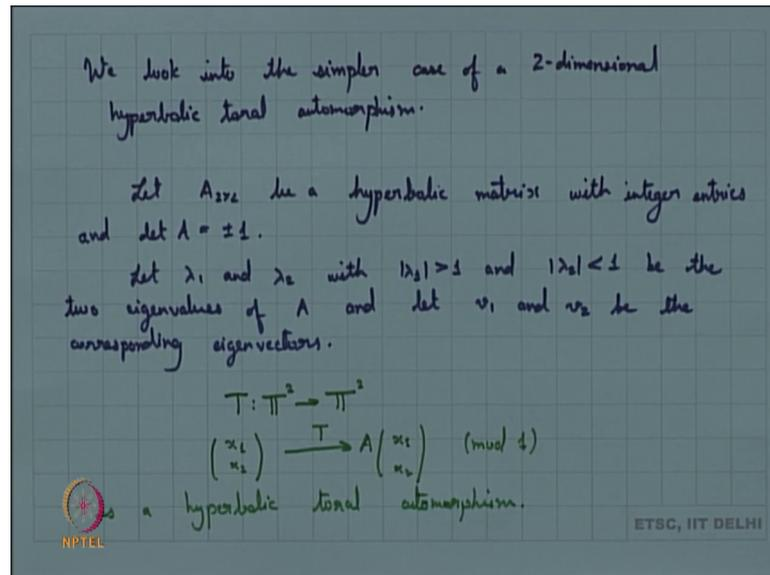 We look into the simpler case of a 2-dimensional
hyperbolic toral automorphism.
Let A₂ₓ₂ be a hyperbolic matrix with integer entries
and det A = ±1.
Let λ₁ and λ₂ with |λ₁| > 1 and |λ₂| < 1 be the
two eigenvalues of A and let v₁ and v₂ be the
corresponding eigenvectors.
T : 𝕋² → 𝕋²
(x₁ x₂) —T→ A (x₁ x₂) (mod 1)
is a hyperbolic toral automorphism.
ETSC, IIT DELHI
NPTEL